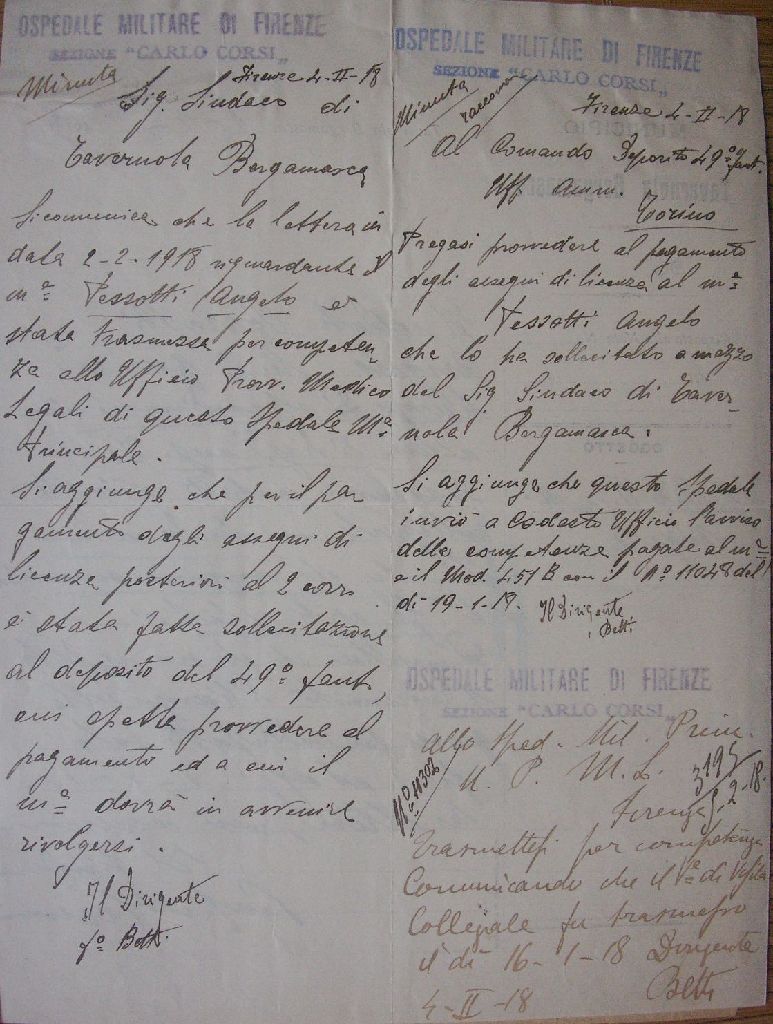 OSPEDALE MILITARE DI FIRENZE
SEZIONE "CARLO CORSI"
Minuta
Firenze 4-II-18
Sig. Sindaco di
Tavernola Bergamasca
Si comunica che la lettera in
data 2-2-1918 riguardante il
m.º Tessotti Angelo è
stata trasmessa per competen-
za allo Ufficio Provv. Medico
Legali di questo Spedale M.re
Principale.
Si aggiunge che per il pa-
gamento degli assegni di
licenza posteriori al 2 corr.
è stata fatta sollecitazione
al deposito del 49º fant.,
cui spetta provvedere al
pagamento ed a cui il
m.º dovrà in avvenire
rivolgersi.
Il Dirigente
f.º Betti
OSPEDALE MILITARE DI FIRENZE
SEZIONE "CARLO CORSI"
Minuta
Firenze 4-II-18
Al Comando Deposito 49º fant.
Uff. Amm.
Torino
Pregasi provvedere al pagamento
degli assegni di licenza al m.º
Tessotti Angelo
che lo ha sollecitato a mezzo
del Sig. Sindaco di Taver-
nola Bergamasca.
Si aggiunge che questo Spedale
inviò a Codesto Ufficio l'avviso
delle competenze pagate al m.º
e il Mod. 451 B con il Nº 11048 del
dì 19-1-18. Il Dirigente
Betti
OSPEDALE MILITARE DI FIRENZE
SEZIONE "CARLO CORSI"
Allo Sped. Mil. Princ.
U. P. M. L.
Nº 11302
3195
Firenze
2-18.
Trasmettesi per competenza
Comunicando che il V.e di Visita
Collegiale fu trasmesso
il dì 16-1-18 Dirigente
4-II-18 Betti